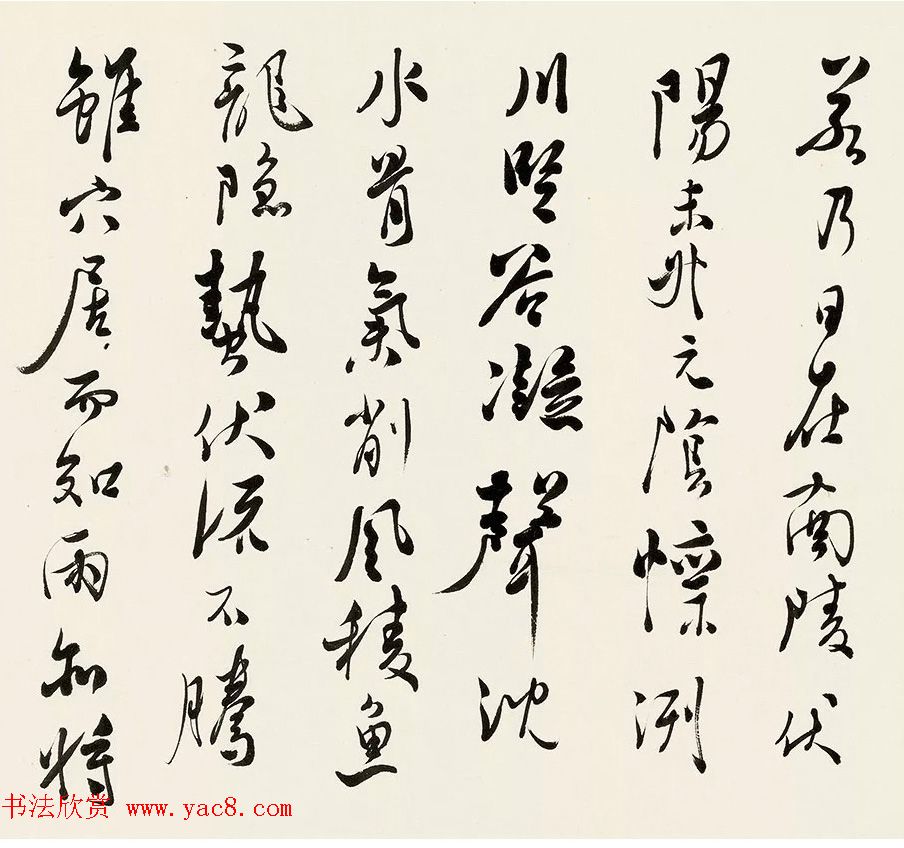 若乃日在南陵伏
陽未升元陰慄洌
川堅谷凝聲沈
水骨氣削風稜魚
龍隱蟄伏流不騰
雖穴居而知雨亦將
书法欣赏 www.yac8.com